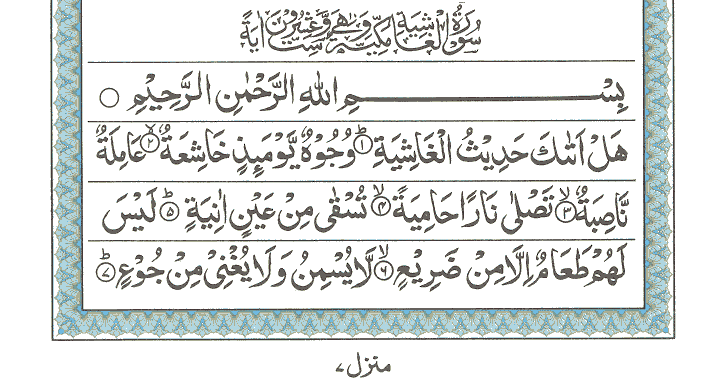 سُوْرَةُ الْغَاشِيَةِ مَكِّيَّةٌ وَّهِيَ سِتٌّ وَّعِشْرُوْنَ اٰيَةً
بِسْمِ اللّٰهِ الرَّحْمٰنِ الرَّحِيْمِ ۝
هَلْ اَتٰىكَ حَدِيْثُ الْغَاشِيَةِ ؕ‏﴿۱﴾ وُجُوْهٌ يَّوْمَىِٕذٍ خَاشِعَةٌ ۙ‏﴿۲﴾ عَامِلَةٌ
نَّاصِبَةٌ ۙ‏﴿۳﴾ تَصْلٰى نَارًا حَامِيَةً ۙ‏﴿۴﴾ تُسْقٰى مِنْ عَيْنٍ اٰنِيَةٍ ؕ‏﴿۵﴾ لَيْسَ
لَهُمْ طَعَامٌ اِلَّا مِنْ ضَرِيْعٍ ۙ‏﴿۶﴾ لَّا يُسْمِنُ وَلَا يُغْنِيْ مِنْ جُوْعٍ ؕ‏﴿۷﴾
منزل ۷